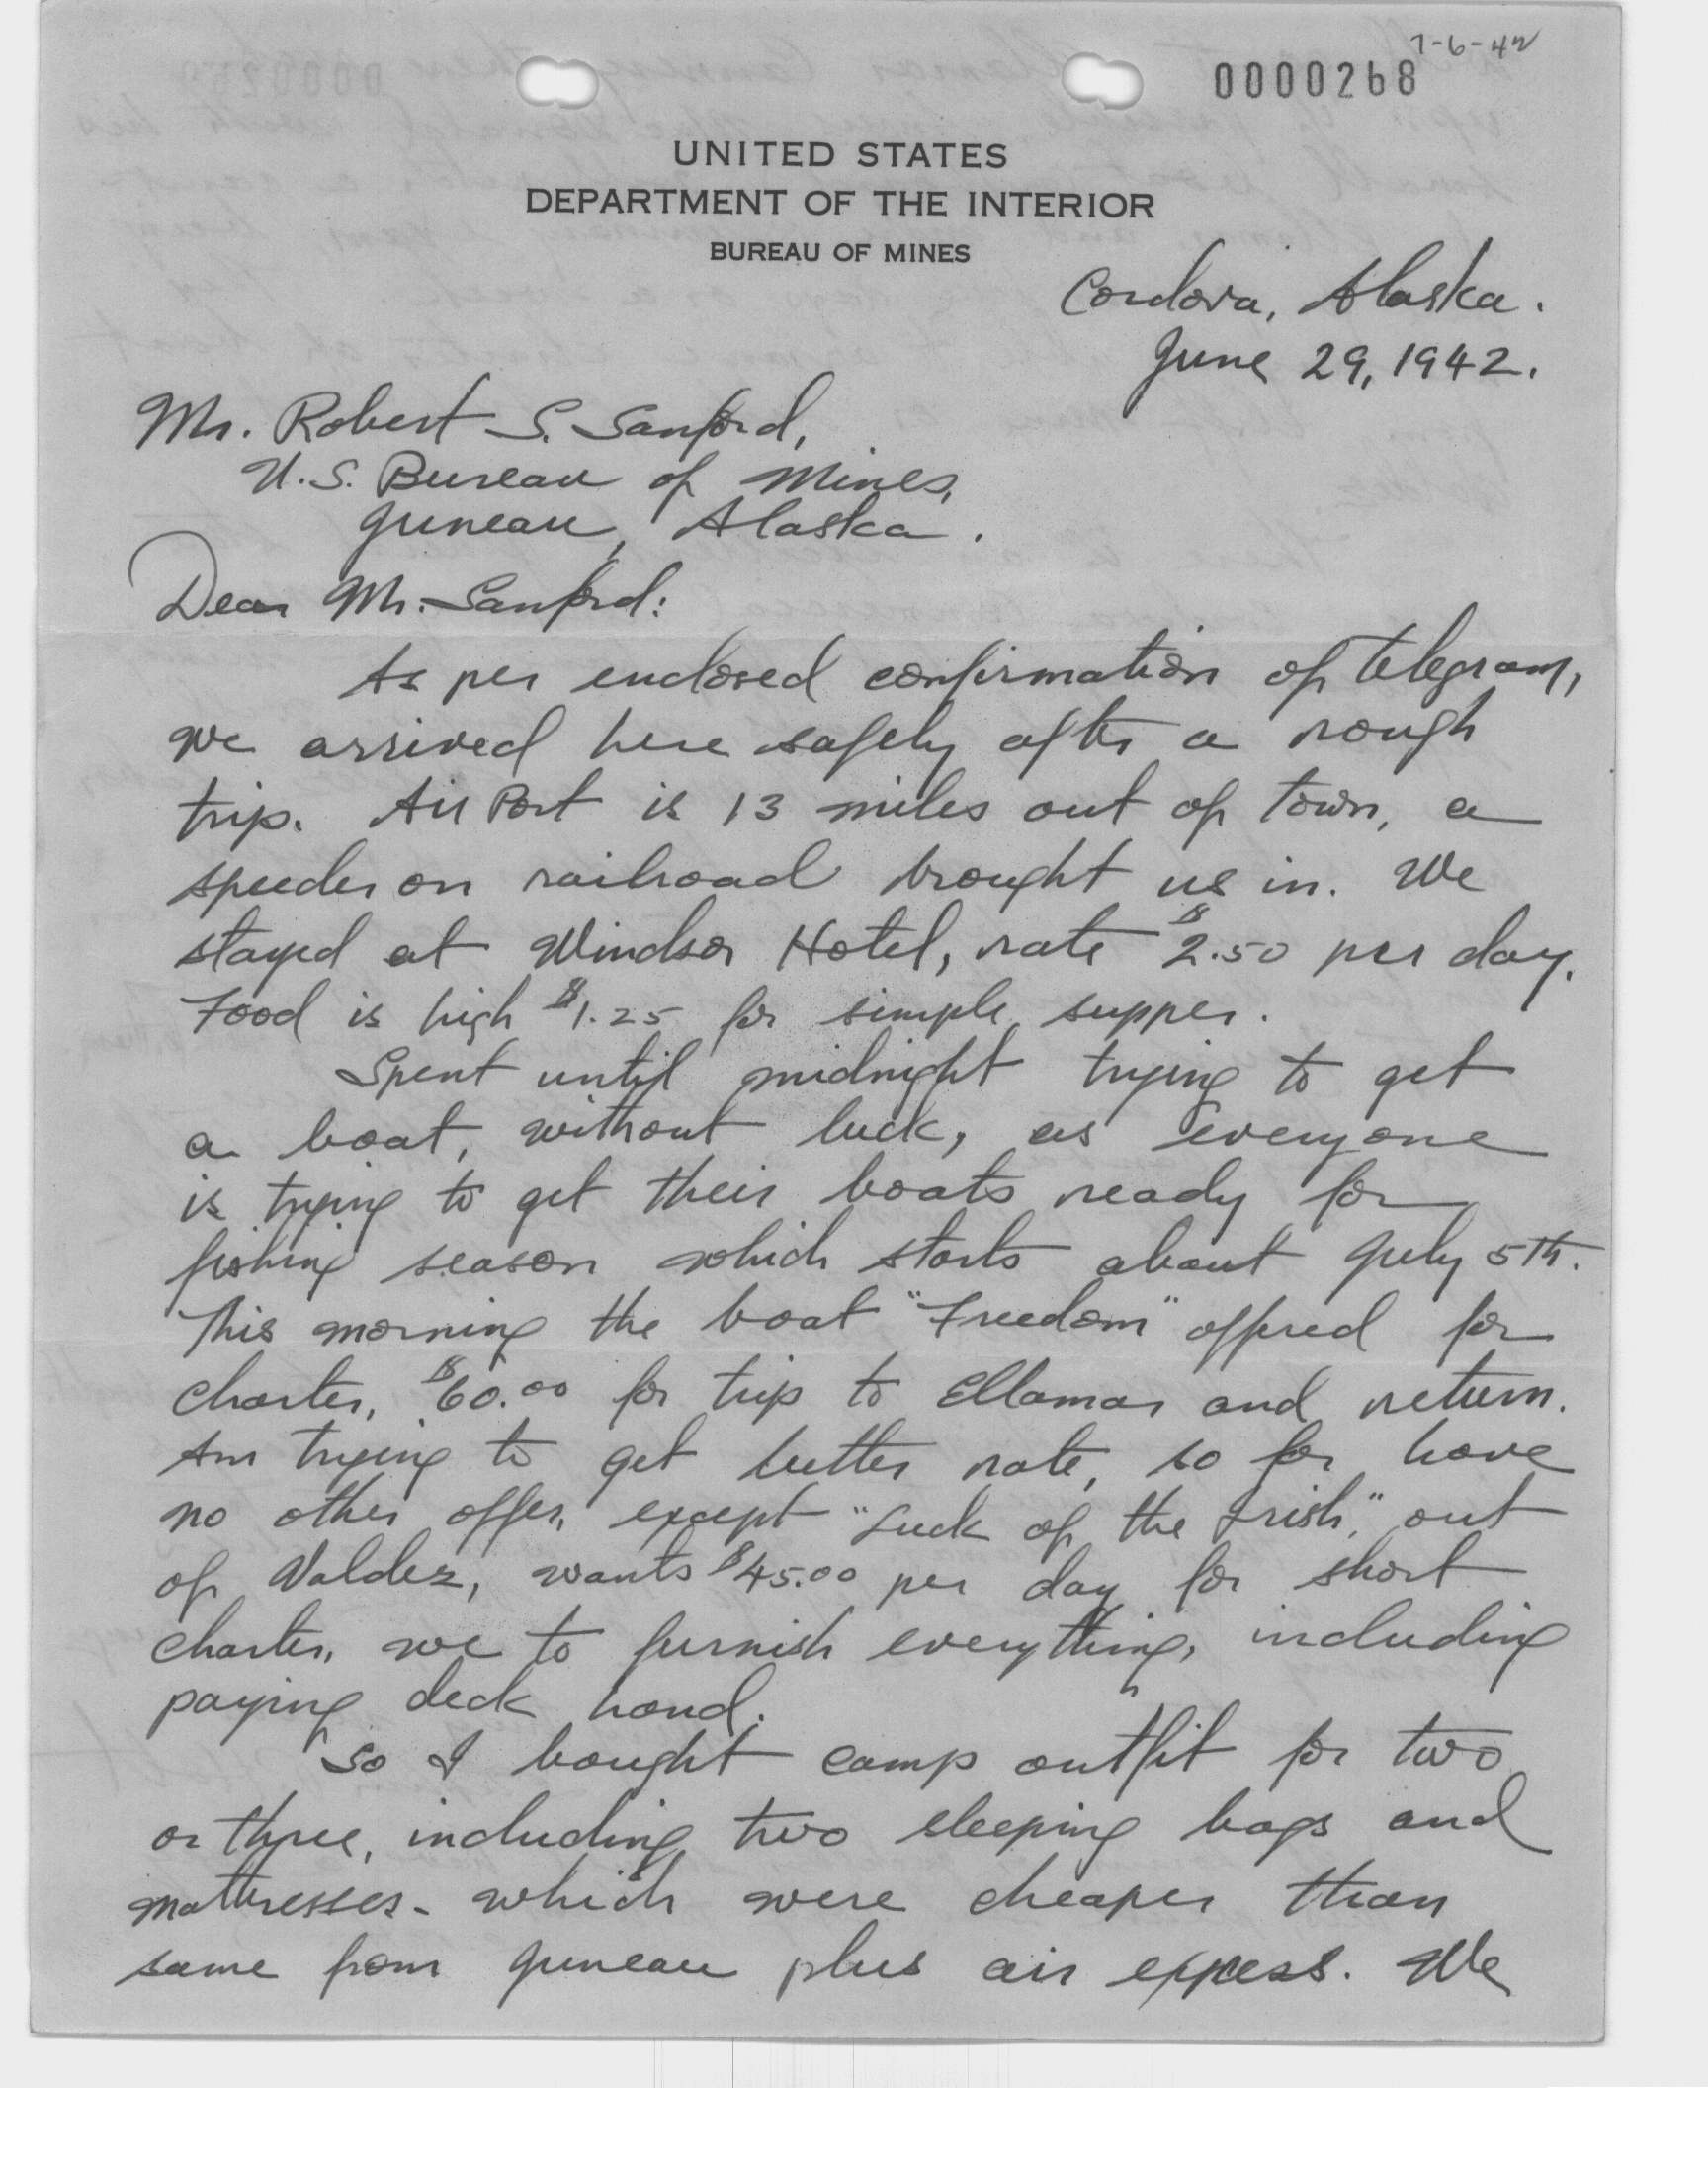 7-6-42
0000268
UNITED STATES
DEPARTMENT OF THE INTERIOR
BUREAU OF MINES
Cordova, Alaska.
June 29, 1942.
Mr. Robert S. Sanford,
U.S. Bureau of Mines,
Juneau, Alaska.
Dear Mr. Sanford:
As per enclosed confirmation of telegram,
we arrived here safely after a rough
trip. Air Port is 13 miles out of town, a
speeder on railroad brought us in. We
stayed at Windsor Hotel, rate $2.50 per day.
Food is high $1.25 for simple supper.
Spent until midnight trying to get
a boat, without luck, as everyone
is trying to get their boats ready for
fishing season which starts about July 5th.
This morning the boat "Freedom" offered for
charter, $60.00 for trip to Ellamar and return.
Am trying to get better rate, so far have
no other offer, except "Luck of the Irish," out
of Valdez, wants $45.00 per day for short
charter, we to furnish everything, including
paying deck hand.
So I bought camp outfit for two
or three, including two sleeping bags and
mattresses - which were cheaper than
same from Juneau plus air express. We